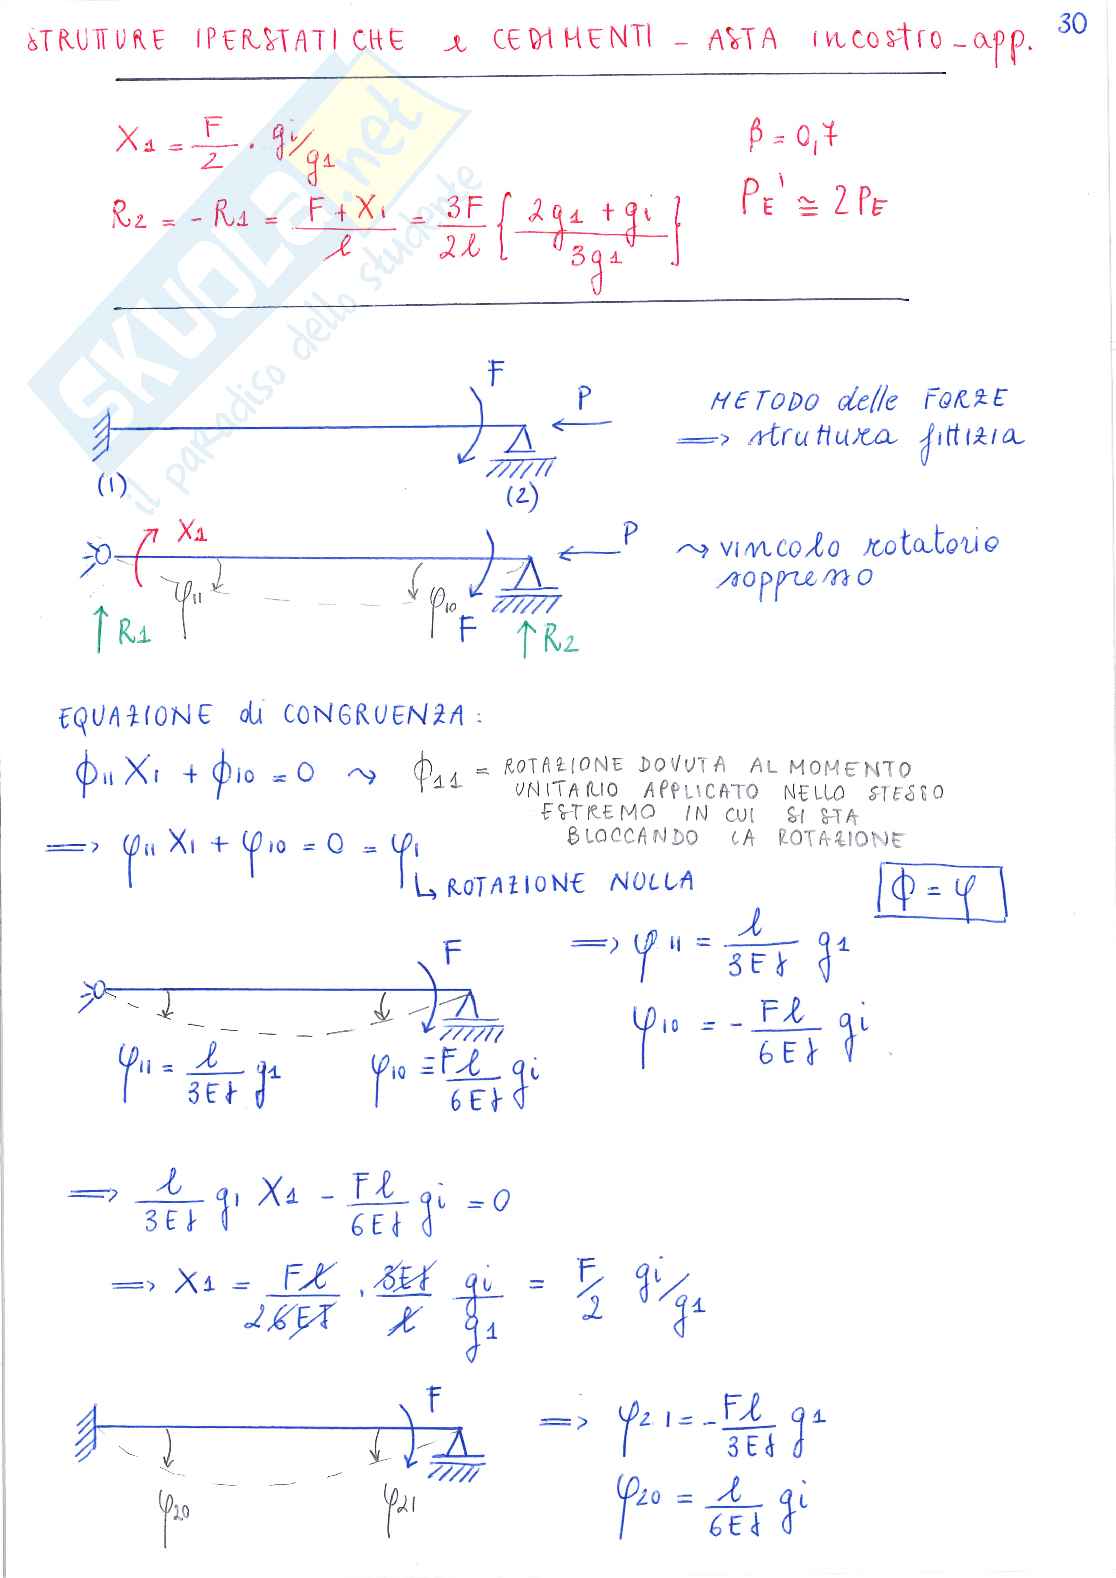 30
STRUTTURE IPERSTATICHE e CEDIMENTI - ASTA incastro-app.
X1 = F/2 · gi/g1
β = 0,7
R2 = -R1 = (F + X1)/l = 3F/2l { (2g1 + gi)/3g1 }
PE' ≅ 2PE
SKUOLA.net
il paradiso dello studente
F
P
METODO delle FORZE
=> struttura fittizia
(1)
(2)
X1
P
~> vincolo rotatorio
soppresso
φ11
φ10
F
R1
R2
EQUAZIONE di CONGRUENZA:
ϕ11 X1 + ϕ10 = 0 ~> ϕ11 = ROTAZIONE DOVUTA AL MOMENTO
UNITARIO APPLICATO NELLO STESSO
ESTREMO IN CUI SI STA
BLOCCANDO LA ROTAZIONE
=> φ11 X1 + φ10 = 0 = φ1
↳ ROTAZIONE NULLA
ϕ = φ
F
=> φ11 = l/3EJ g1
φ10 = - Fl/6EJ gi
φ11 = l/3EJ g1
φ10 = -Fl/6EJ gi
=> l/3EJ g1 X1 - Fl/6EJ gi = 0
=> X1 = Fl/26EJ · 3EJ/l gi/g1 = F/2 gi/g1
F
=> φ21 = - Fl/3EJ g1
φ20
φ21
φ20 = l/6EJ gi